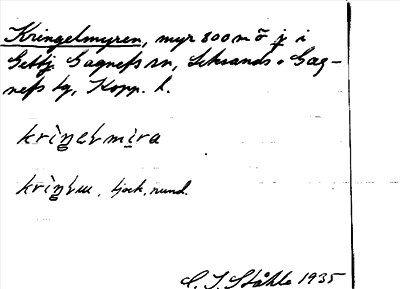 Kringelmyren, myr 800 m ö j i
Getbj. Gagnefs sn, Leksands o Gag-
nefs tg, Kopp. l.
krìŋelmira
krìŋlɯ, tjock, rund.
C. I. Ståhle 1935